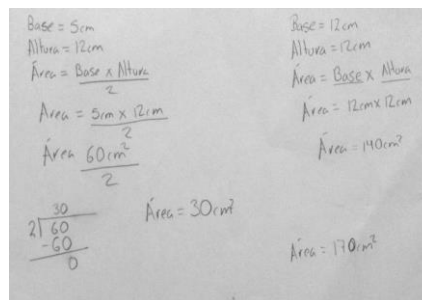 Base = 5cm
Altura = 12cm
Área = Base x Altura
2
Area = 5cm x 12cm
2
Área 60cm²
2
30
2 60
-60
0
Área = 30cm²
Base = 12cm
Altura = 12cm
Área = Base x Altura
Área = 12cm x 12cm
Área = 140cm²
Área = 170cm²